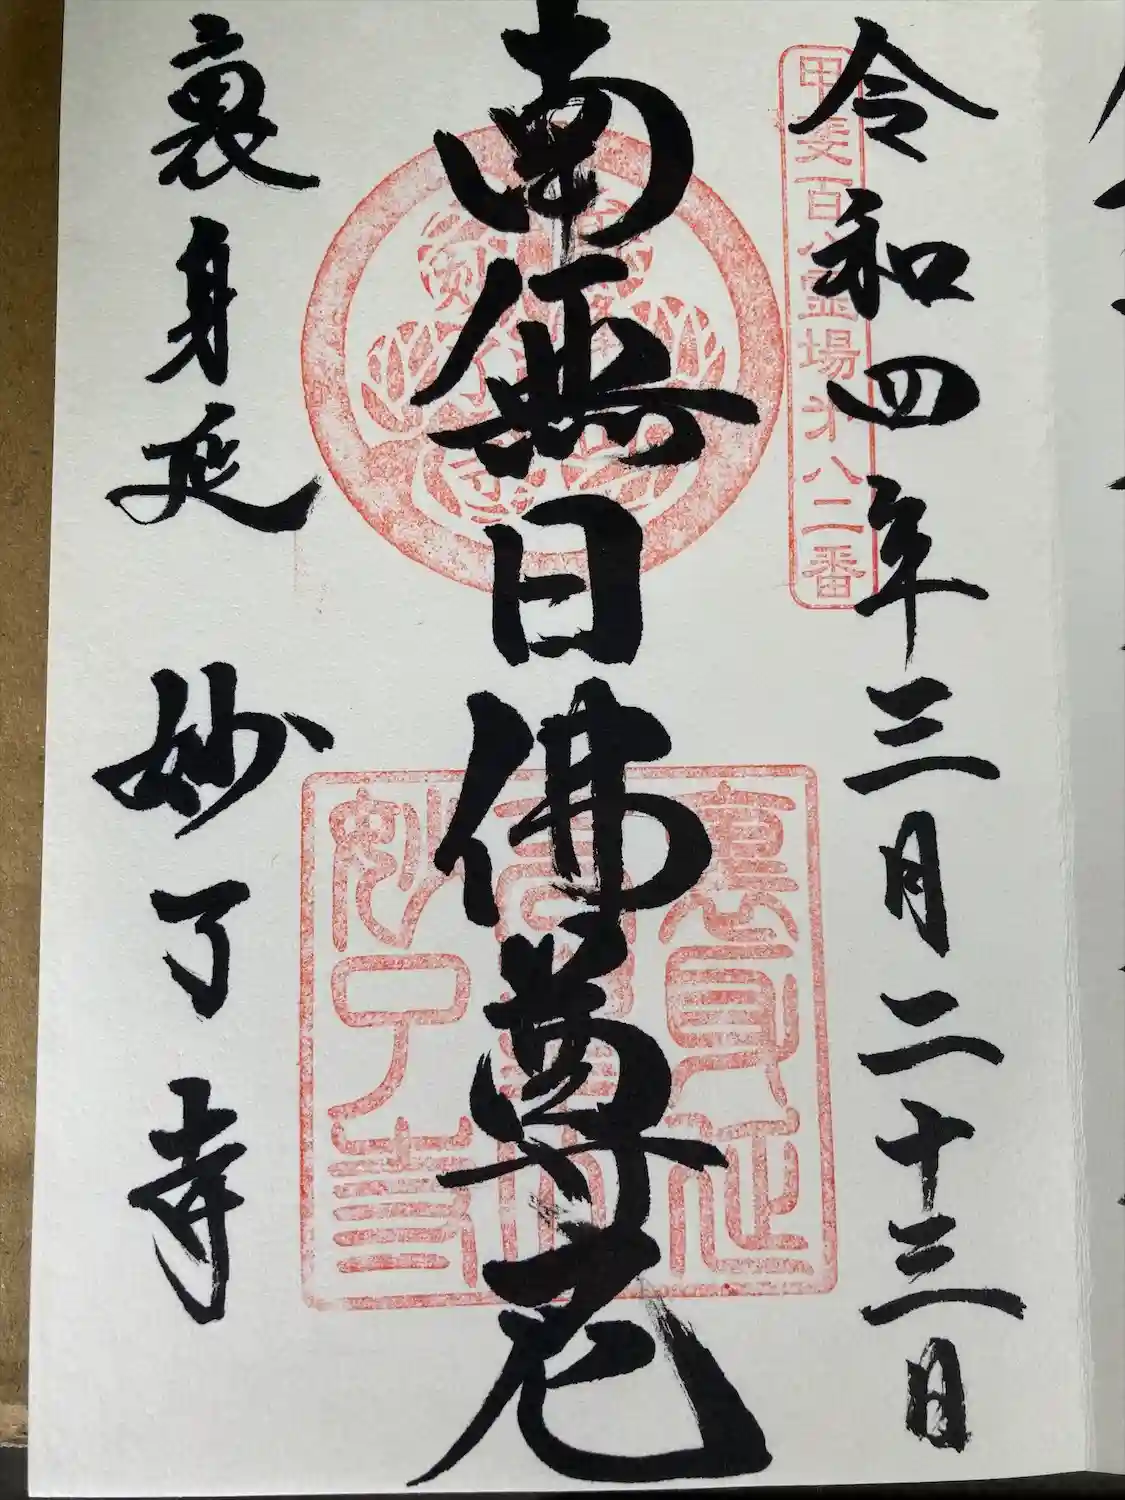 令和四年三月二十三日
甲斐百八霊場第八二番
南無日佛尊尼
裏身延
妙了寺
裏身延
妙了寺